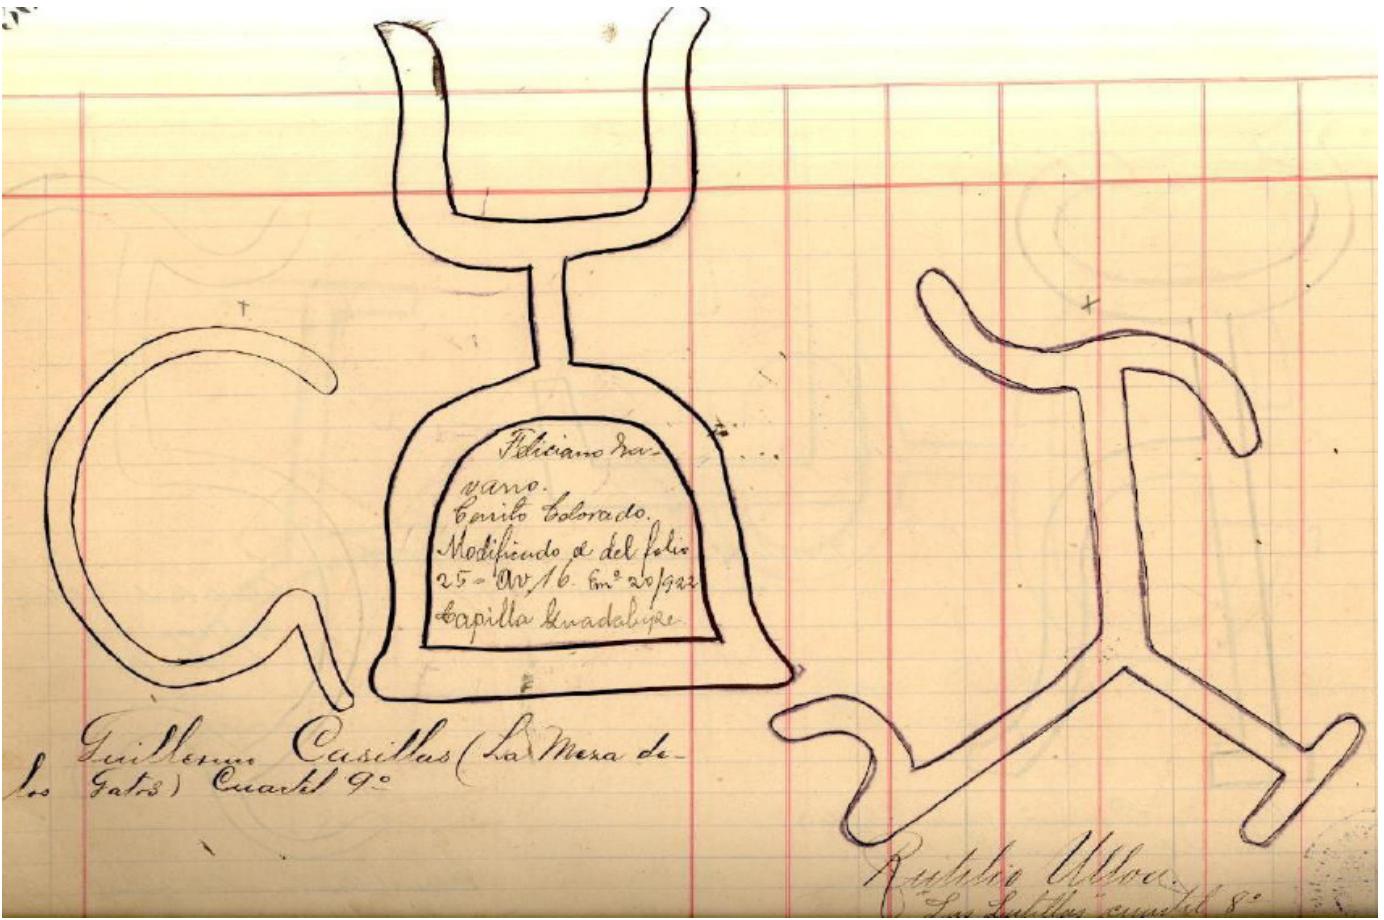 Feliciano Na-
varro.
Cerrito Colorado.
Modificado el del folio
25 - Av 16. En° 20/922
Capilla Guadalupe
Guillermo Casillas (La Mesa de
los Gatos) Cuartel 9°
Rutilio Ulloa
"Las cuartel 8°